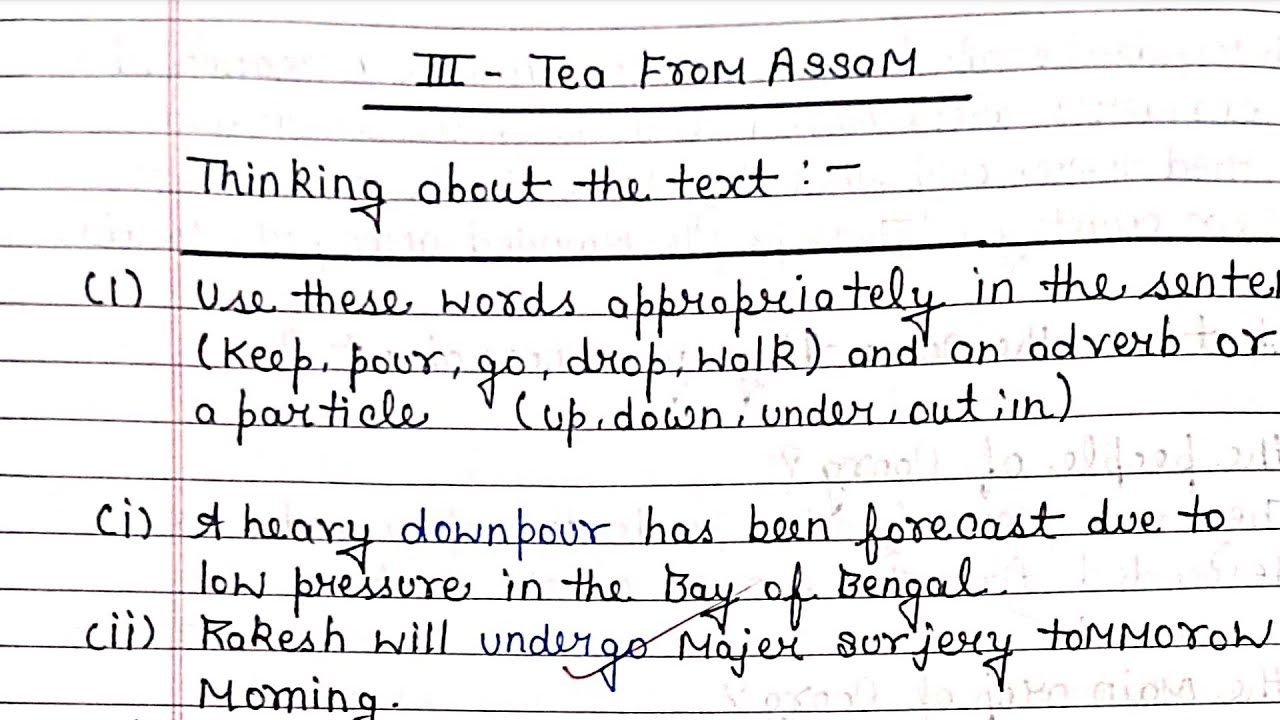 III - Tea From Assam
Thinking about the text : -
(i) Use these words appropriately in the sente
(Keep, pour, go, drop, walk) and an adverb or
a particle (up, down, under, out, in)
(i) A heary downpour has been forecast due to
low pressure in the Bay of Bengal.
(ii) Rakesh will undergo Majer surjery tommorow
Morning.